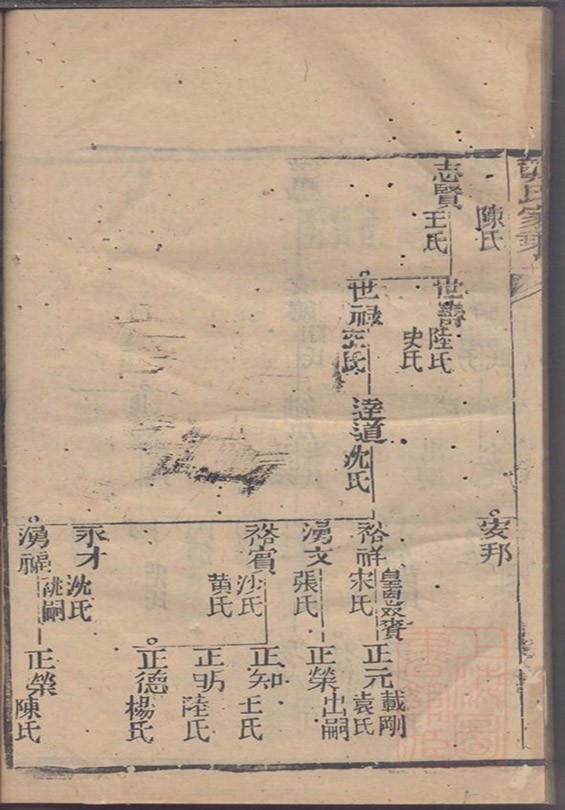 氏家
陳氏
志賢
王氏
世壽
陸氏
史氏
世祿
達道
沈氏
安邦
裕祥
宋氏
皇恩欽賓
湧文
張氏
裕賓
沙氏
黄氏
永才
沈氏
湧福
祧嗣
正元
載剛
袁氏
正榮
出嗣
正知
王氏
正明
陸氏
正德
楊氏
正榮
陳氏